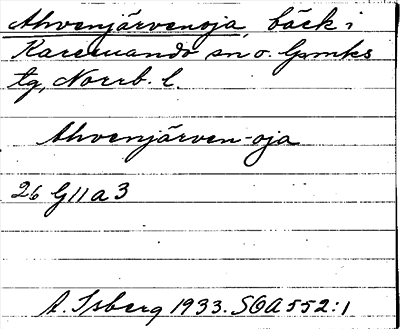 Ahvenjärvenoja, bäck i
Karesuando sn o. lpmks
tg, Norrb. l.
Ahvenjärven-oja
26 G11a3
A. Isberg 1933. SOA 552:1